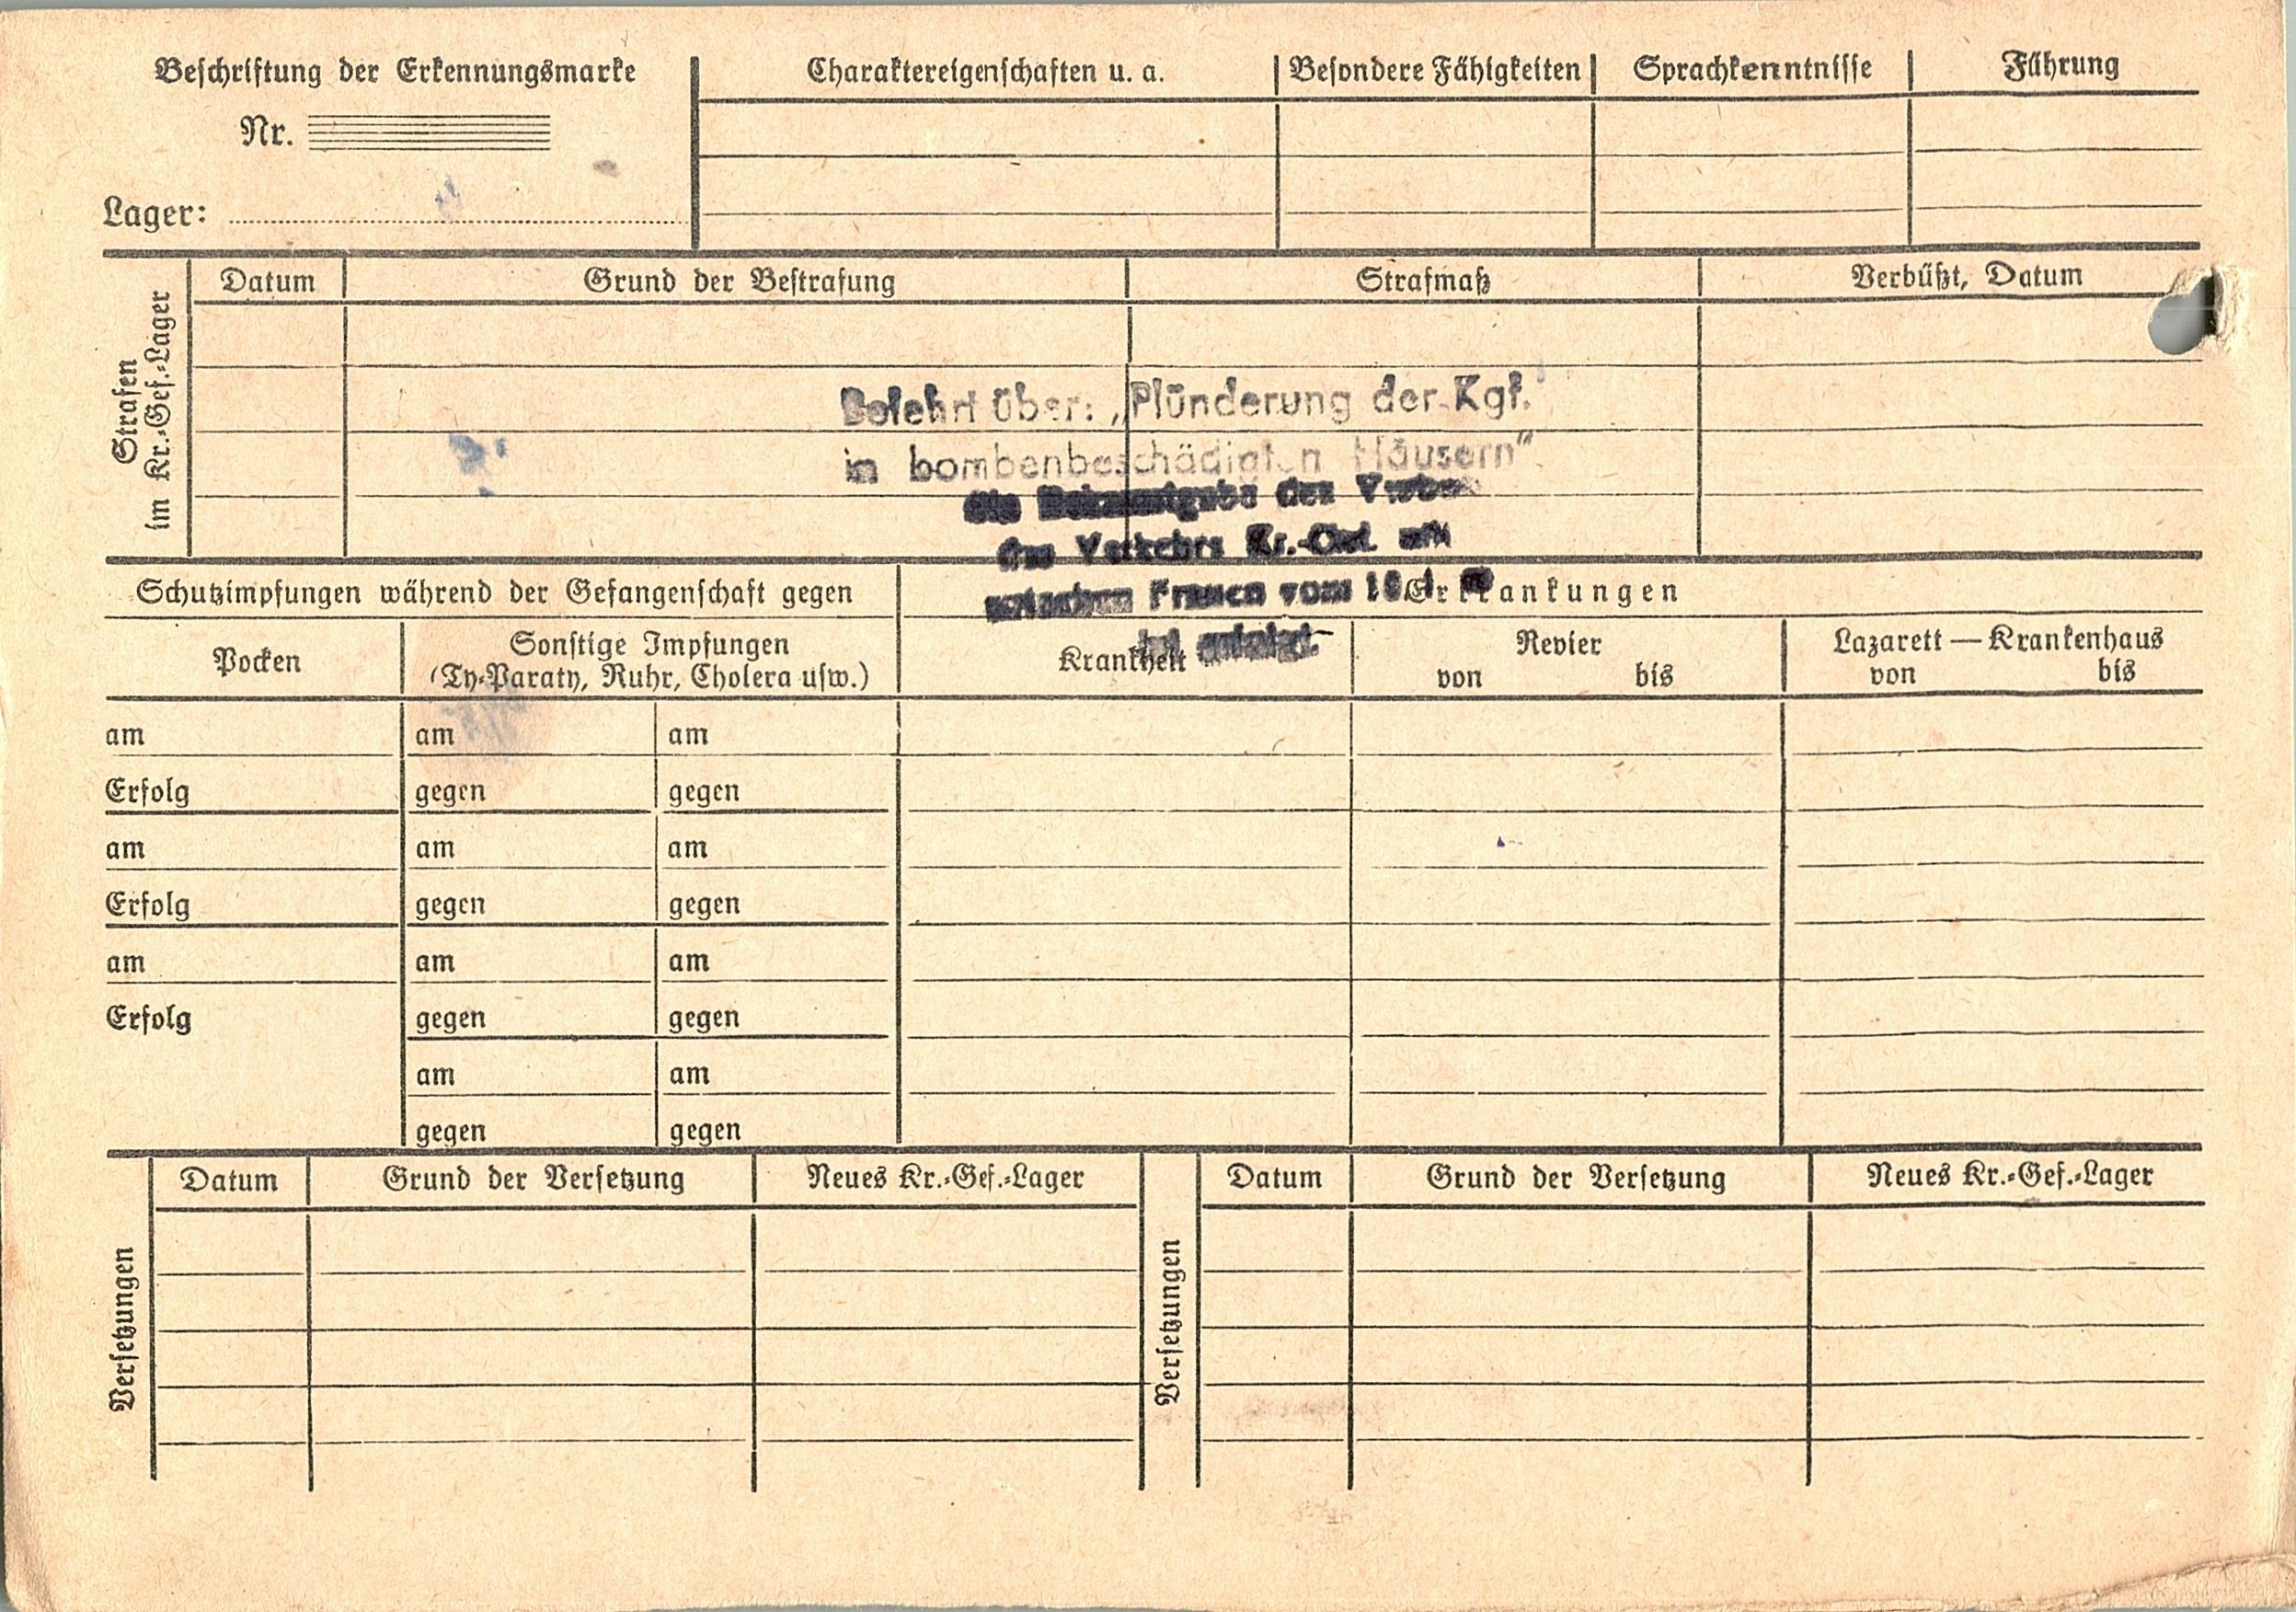 Beschriftung der Erkennungsmarke
Nr.
Lager:
Charaktereigenschaften u. a.
Besondere Fähigkeiten
Sprachkenntnisse
Führung
Strafen
im Kr.-Gef.-Lager
Datum
Grund der Bestrafung
Strafmaß
Verbüßt, Datum
Belehrt über: „Plünderung der Kgf.
in bombenbeschädigten Häusern“
des
des Verkehrs Kr.-Gef. mit
Frauen vom
hat
Schutzimpfungen während der Gefangenschaft gegen
Erkrankungen
Pocken
Sonstige Impfungen
(Ty-Paraty, Ruhr, Cholera usw.)
Krankheit
Revier
von bis
Lazarett — Krankenhaus
von bis
am am am
Erfolg gegen gegen
am am am
Erfolg gegen gegen
am am am
Erfolg gegen gegen
am am
gegen gegen
Versetzungen
Datum
Grund der Versetzung
Neues Kr.-Gef.-Lager
Versetzungen
Datum
Grund der Versetzung
Neues Kr.-Gef.-Lager